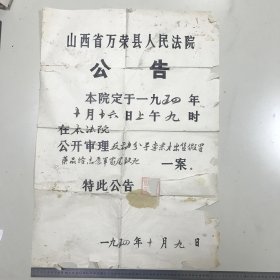 山西省万荣县人民法院
公告
本院定于一九五四年
十月十六日上午九时
在本法院
公开审理
一案。
特此公告
一九五四年十月九日